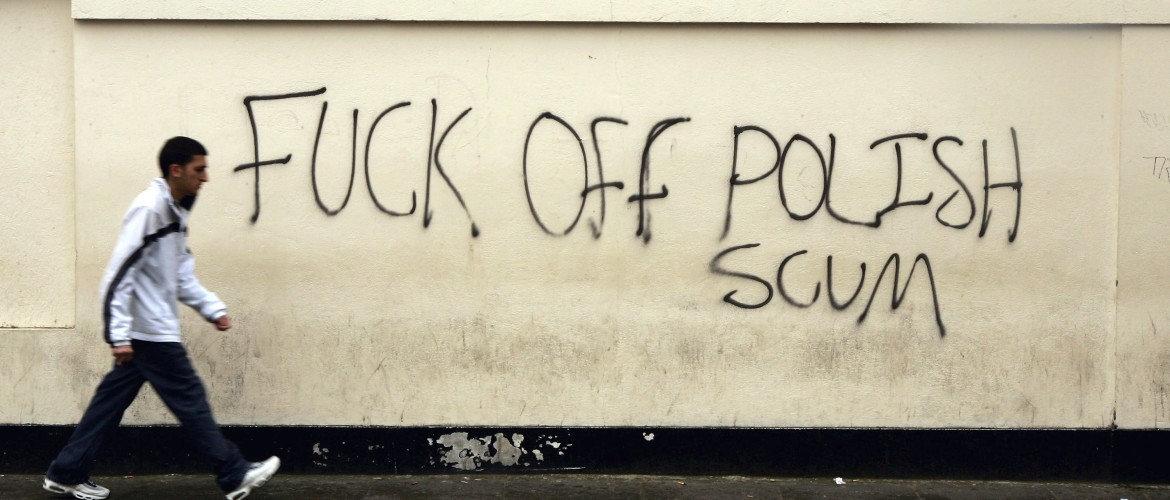 FUCK OFF POLISH
SCUM